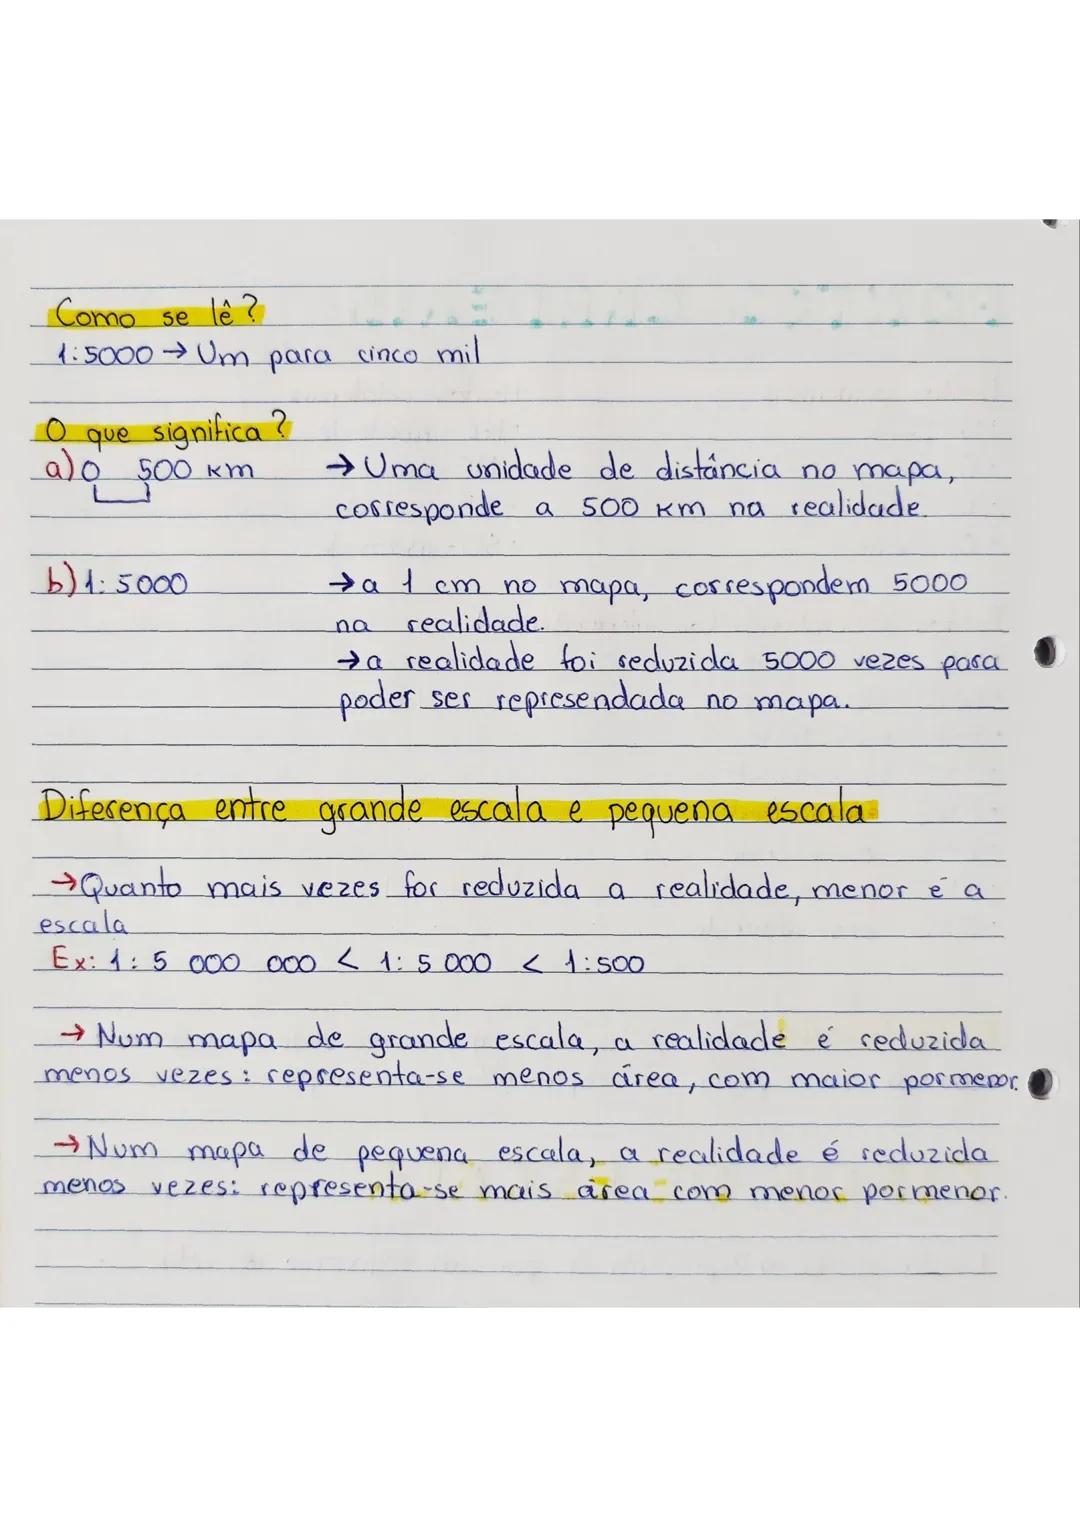 Como se lê?
1:5000 → Um para cinco mil
O que significa?
a) 0 500 km → Uma unidade de distância no mapa,
corresponde a 500 km na realidade.
b) 1:5000 → a 1 cm no mapa, correspondem 5000
na realidade.
→ a realidade foi reduzida 5000 vezes para
poder ser represendada no mapa.
Diferença entre grande escala e pequena escala
→ Quanto mais vezes for reduzida a realidade, menor é a
escala
Ex: 1:5 000 000 < 1:5 000 < 1:500
→ Num mapa de grande escala, a realidade é reduzida
menos vezes: representa-se menos área, com maior pormenor.
→ Num mapa de pequena escala, a realidade é reduzida
menos vezes: representa-se mais área com menor pormenor.